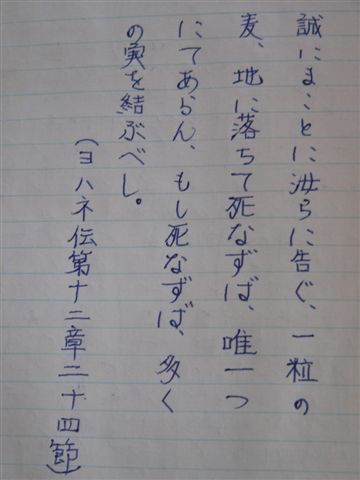 誠にまことに汝らに告ぐ、一粒の
麦、地に落ちて死なずば、唯一つ
にてあらん、もし死なずば、多く
の実を結ぶべし。
(ヨハネ伝第十二章二十四節)